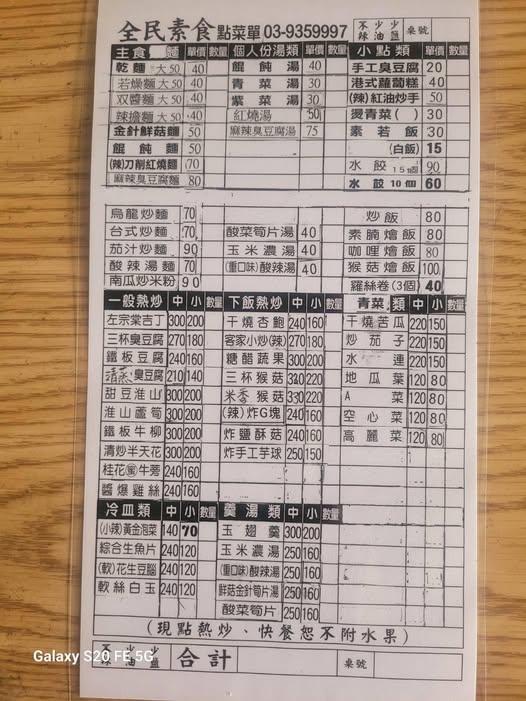 全民素食 點菜單 03-9359997 不辣 少油 少鹽 桌號
主食 麵 單價 數量 個人份湯類 單價 數量 小點類 單價 數量
乾麵 大50 40 餛飩湯 40 手工臭豆腐 20
若燥麵 大50 40 青菜湯 30 港式蘿蔔糕 40
双醬麵 大50 40 紫菜湯 30 (辣)紅油炒手 50
辣擔麵 大50 40 紅燒湯 50 燙青菜( ) 30
金針鮮菇麵 50 麻辣臭豆腐湯 75 素若飯 30
餛飩麵 50 (白飯) 15
(辣)刀削紅燒麵 70 水餃 15個 90
麻辣臭豆腐麵 80 水餃 10個 60
烏龍炒麵 70 炒飯 80
台式炒麵 70 酸菜筍片湯 40 素腩燴飯 80
茄汁炒麵 90 玉米濃湯 40 咖哩燴飯 80
酸辣湯麵 70 (重口味)酸辣湯 40 猴菇燴飯 100
南瓜炒米粉 90 羅絲卷(3個) 40
一般熱炒 中 小 數量 下飯熱炒 中 小 數量 青菜類 中 小 數量
左宗棠吉丁 300 200 干燒杏鮑 240 160 干燒苦瓜 220 150
三杯臭豆腐 270 180 客家小炒(辣) 270 180 炒茄子 220 150
鐵板豆腐 240 160 糖醋蔬果 300 200 水連 220 150
清蒸臭豆腐 210 140 三杯猴菇 320 220 地瓜葉 120 80
甜豆淮山 300 200 米香猴菇 330 220 A菜 120 80
淮山蘆筍 300 200 (辣)炸G塊 240 160 空心菜 120 80
鐵板牛柳 300 200 炸鹽酥菇 240 160 高麗菜 120 80
清炒半天花 300 200 炸手工芋球 250 150
桂花(蜜)牛蒡 240 160
醬爆雞絲 240 160
冷皿類 中 小 數量 羹湯類 中 小 數量
(小辣)黃金泡菜 140 70 玉翅羹 300 200
綜合生魚片 240 120 玉米濃湯 250 160
(軟)花生豆腦 240 120 (重口味)酸辣湯 250 160
軟絲白玉 240 120 鮮菇金針筍片湯 250 160
酸菜筍片 250 160
(現點熱炒、快餐恕不附水果)
不辣 少油 少鹽 合計 桌號
Galaxy S20 FE 5G